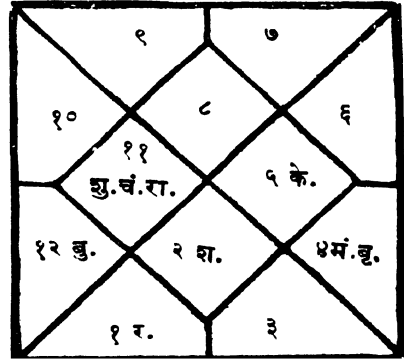 ९ ७
८
१० ६
११
शु.चं.रा. ५ के.
१२ बु. २ श. ४मं.बृ.
१ र. ३